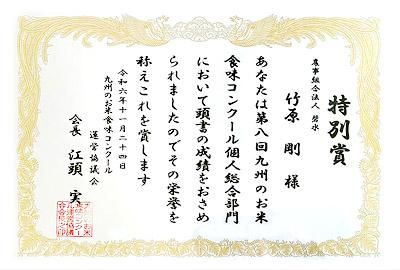 特別賞
農事組合法人 碧水
竹原 剛 様
あなたは第八回九州のお米
食味コンクール個人総合部門
において頭書の成績をおさめ
られましたのでその栄誉を
称えこれを賞します
令和六年十一月二十四日
九州のお米食味コンクール
運営協議会
会長 江頭 実